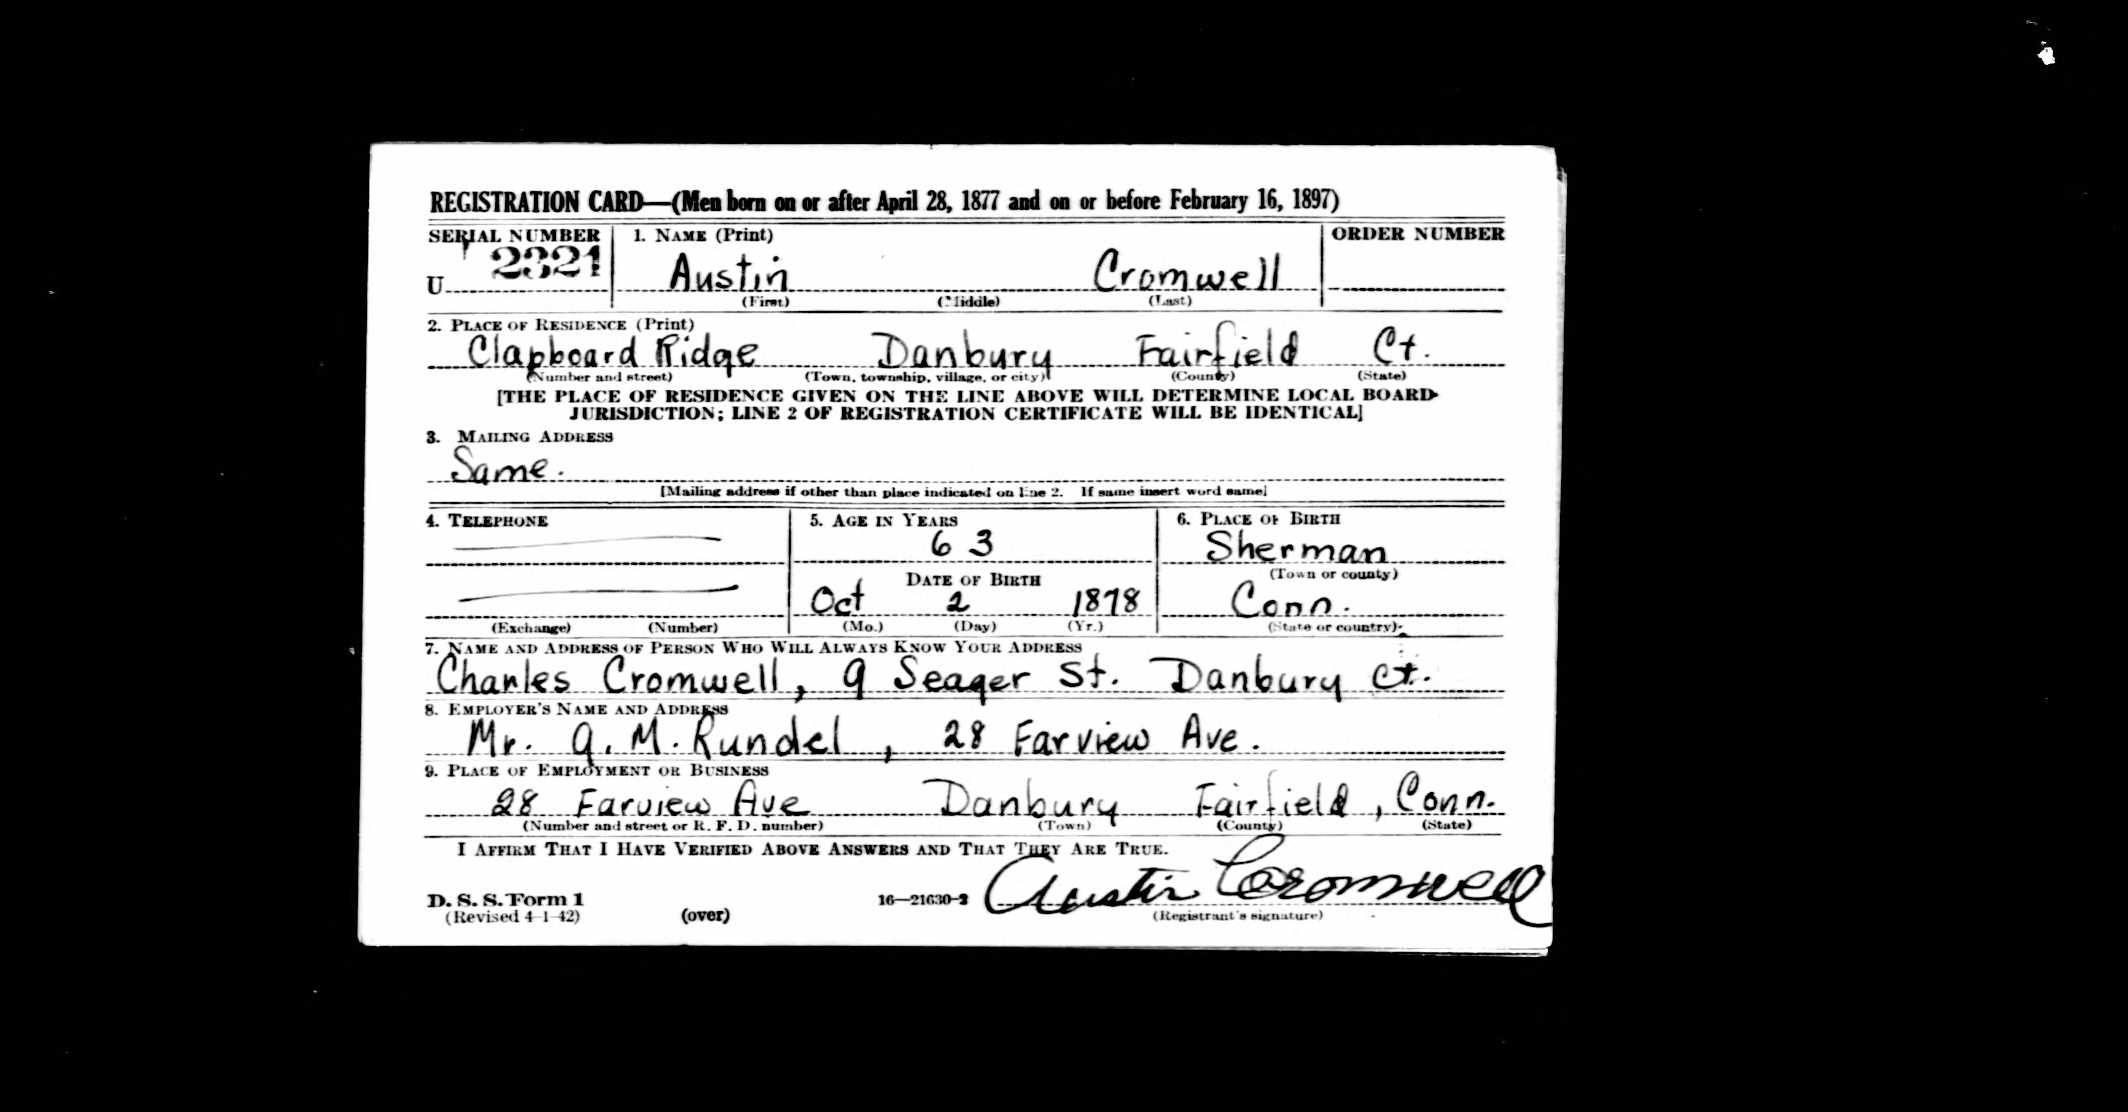 REGISTRATION CARD—(Men born on or after April 28, 1877 and on or before February 16, 1897)
SERIAL NUMBER 1. NAME (Print) ORDER NUMBER
U 2321 Austin Cromwell
(First) (Middle) (Last)
2. PLACE OF RESIDENCE (Print)
Clapboard Ridge Danbury Fairfield Ct.
(Number and street) (Town, township, village, or city) (County) (State)
[THE PLACE OF RESIDENCE GIVEN ON THE LINE ABOVE WILL DETERMINE LOCAL BOARD
JURISDICTION; LINE 2 OF REGISTRATION CERTIFICATE WILL BE IDENTICAL]
3. MAILING ADDRESS
Same.
[Mailing address if other than place indicated on line 2. If same insert word same]
4. TELEPHONE 5. AGE IN YEARS 6. PLACE OF BIRTH
63 Sherman
DATE OF BIRTH (Town or county)
Oct 2 1878 Conn.
(Exchange) (Number) (Mo.) (Day) (Yr.) (State or country)
7. NAME AND ADDRESS OF PERSON WHO WILL ALWAYS KNOW YOUR ADDRESS
Charles Cromwell, 9 Seager St. Danbury Ct.
8. EMPLOYER'S NAME AND ADDRESS
Mr. M. Rundel, 28 Farview Ave.
9. PLACE OF EMPLOYMENT OR BUSINESS
28 Farview Ave Danbury Fairfield, Conn.
(Number and street or R. F. D. number) (Town) (County) (State)
I AFFIRM THAT I HAVE VERIFIED ABOVE ANSWERS AND THAT THEY ARE TRUE.
D. S. S. Form 1 16—21630-2 Austin Cromwell
(Revised 4-1-42) (over) (Registrant's signature)